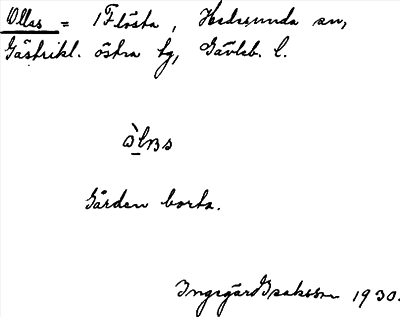 Ollas = 1 Flösta, Hedesunda sn,
Gästrikl. östra tg, Gävleb. l.
Gården borta.
Ingegärd Isaksson 1930.